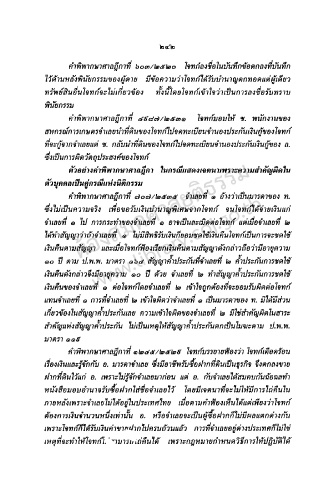 ๒๔๒
คำพิพากษาศาลฎีกาที่ ๖๐๓/๒๕๒๐ โจทก์ลงชื่อในบันทึกข้อตกลงที่บันทึก
ไว้ด้านหลังพินัยกรรมของผู้ตาย มีข้อความว่าโจทก์ได้รับบำนาญตกทอดแต่ผู้เดียว
ทรัพย์สินอื่นโจทก์จะไม่เกี่ยวข้อง ทั้งนี้โดยโจทก์เข้าใจว่าเป็นการลงชื่อรับทราบ
พินัยกรรม
คำพิพากษาศาลฎีกาที่ ๔๕๗๕/๒๕๓๑ โจทก์มอบให้ ช. พนักงานของ
สหกรณ์การเกษตรอำเภอนำที่ดินของโจทก์ไปจดทะเบียนจำนองประกันเงินกู้ของโจทก์
ที่จะกู้จากจำเลย แต่ ช. กลับนำที่ดินของโจทก์ไปจดทะเบียนจำนองประกันเงินกู้ของ ล.
ซึ่งเป็นการผิดวัตถุประสงค์ของโจทก์
ตัวอย่างคำพิพากษาศาลฎีกา ในกรณีแสดงเจตนาเพราะความสำคัญผิดใน
ตัวบุคคลเป็นคู่กรณีแห่งนิติกรรม
คำพิพากษาศาลฎีกาที่ ๗๐๗/๒๕๓๙ จำเลยที่ ๑ อ้างว่าเป็นมารดาของ ท.
ซึ่งไม่เป็นความจริง เพื่อขอรับเงินบำนาญพิเศษจากโจทก์ จนโจทก์ได้จ่ายเงินแก่
จำเลยที่ ๑ ไป การกระทำของจำเลยที่ ๑ อาจเป็นละเมิดต่อโจทก์ แต่เมื่อจำเลยที่ ๒
ได้ทำสัญญาว่าถ้าจำเลยที่ ๑ ไม่มีสิทธิรับเงินก็ยอมชดใช้เงินคืนโจทก์ก็เป็นการจะชดใช้
เงินคืนตามสัญญา และเมื่อโจทก์ฟ้องเรียกเงินคืนตามสัญญาดังกล่าวถือว่ามีอายุความ
๑๐ ปี ตาม ป.พ.พ. มาตรา ๑๖๔ สัญญาค้ำประกันที่จำเลยที่ ๒ ค้ำประกันการชดใช้
เงินคืนดังกล่าวจึงมีอายุความ ๑๐ ปีด้วย จำเลยที่ ๒ ทำสัญญาค้ำประกันการชดใช้
เงินคืนของจำเลยที่ ๑ ต่อโจทก์โดยจำเลยที่ ๒ เข้าใจถูกต้องที่จะยอมรับผิดต่อโจทก์
แทนจำเลยที่ ๑ การที่จำเลยที่ ๒ เข้าใจผิดว่าจำเลยที่ ๑ เป็นมารดาของ ท. มิได้มีส่วน
เกี่ยวข้องในสัญญาค้ำประกันเลย ความเข้าใจผิดของจำเลยที่ ๒ มิใช่สำคัญผิดในสาระ
สำคัญแห่งสัญญาค้ำประกัน ไม่เป็นเหตุให้สัญญาค้ำประกันตกเป็นโมฆะตาม ป.พ.พ.
มาตรา ๑๑๙
คำพิพากษาศาลฎีกาที่ ๑๒๔๕/๒๕๒๕ โจทก์บรรยายฟ้องว่า โจทก์เดือดร้อน
เรื่องเงินและรู้จักกับ อ. มารดาจำเลย ซึ่งมีอาชีพรับซื้อฝากที่ดินเป็นธุรกิจ จึงตกลงขาย
ฝากที่ดินไว้แก่ อ. เพราะไม่รู้จักจำเลยมาก่อน แต่ อ. กับจำเลยได้สมคบกันฉ้อฉลทำ
หนังสือมอบอำนาจรับซื้อฝากใส่ชื่อจำเลยไว้ โดยมีเจตนาที่จะไม่ให้มีการไถ่คืนใน
ภายหลังเพราะจำเลยไม่ได้อยู่ในประเทศไทย เมื่อตามคำฟ้องเห็นได้แต่เพียงว่าโจทก์
ต้องการเงินจำนวนหนึ่งเท่านั้น อ. หรือจำเลยจะเป็นผู้ซื้อฝากก็ไม่มีผลแตกต่างกัน
เพราะโจทก์ก็ได้รับเงินค่าขายฝากไปครบถ้วนแล้ว การที่จำเลยอยู่ต่างประเทศก็ไม่ใช่
เหตุที่จะทำให้โจทก์ไม่สามารถไถ่คืนได้ เพราะกฎหมายกำหนดวิธีการให้ปฏิบัติได้